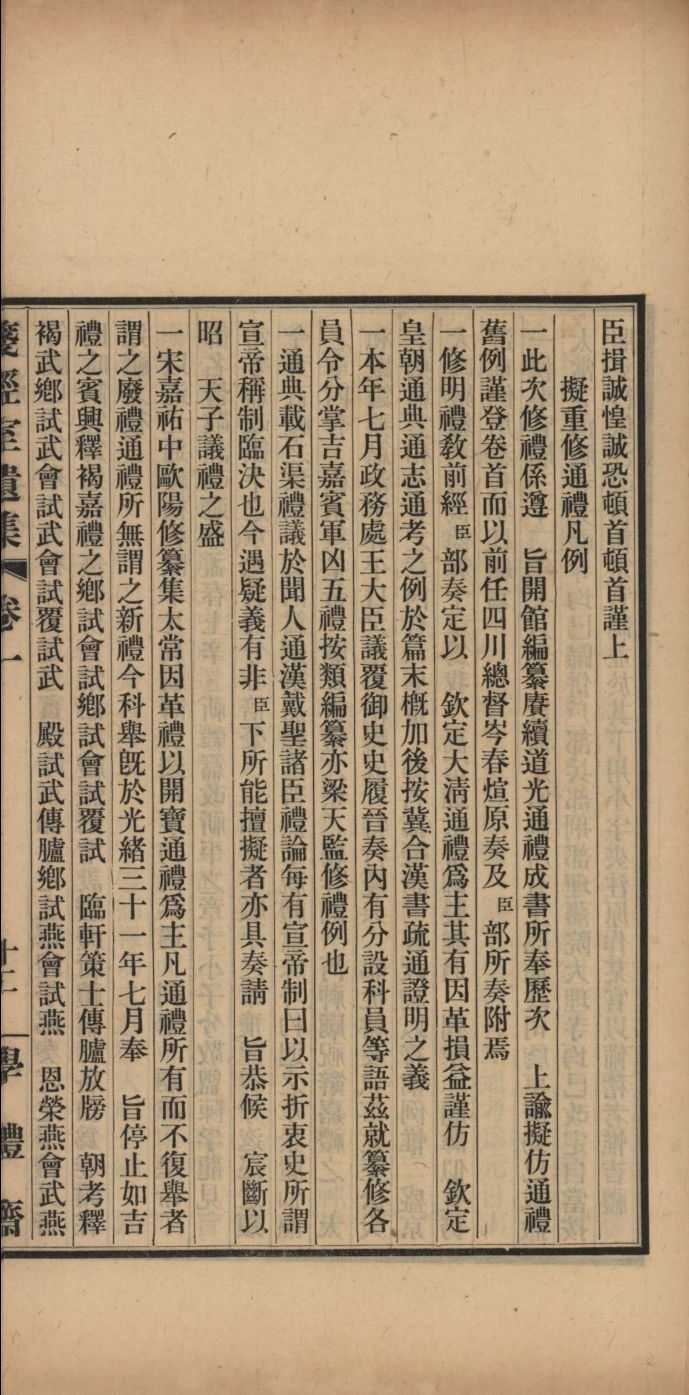 臣揖誠惶誠恐頓首頓首謹上
擬重修通禮凡例
一此次修禮係遵　旨開館編纂賡續道光通禮成書所奉歷次　上諭擬仿通禮
舊例謹登卷首而以前任四川總督岑春煊原奏及臣部所奏附焉
一修明禮敎前經臣部奏定以　欽定大淸通禮爲主其有因革損益謹仿　欽定
皇朝通典通志通考之例於篇末槪加後按冀合漢書疏通證明之義
一本年七月政務處王大臣議覆御史史履晉奏內有分設科員等語茲就纂修各
員令分掌吉嘉賓軍凶五禮按類編纂亦梁天監修禮例也
一通典載石渠禮議於聞人通漢戴聖諸臣禮論每有宣帝制曰以示折衷史所謂
宣帝稱制臨決也今遇疑義有非臣下所能擅擬者亦具奏請　旨恭候　宸斷以
昭　天子議禮之盛
一宋嘉祐中歐陽修纂集太常因革禮以開寶通禮爲主凡通禮所有而不復舉者
謂之廢禮通禮所無謂之新禮今科舉旣於光緒三十一年七月奉　旨停止如吉
禮之賓興釋褐嘉禮之鄉試會試鄉試會試覆試　臨軒策士傳臚放牓　朝考釋
褐武鄉試武會試武會試覆試武　殿試武傳臚鄉試燕會試燕　恩榮燕會武燕
箋經室遺集　卷十一　學禮齋